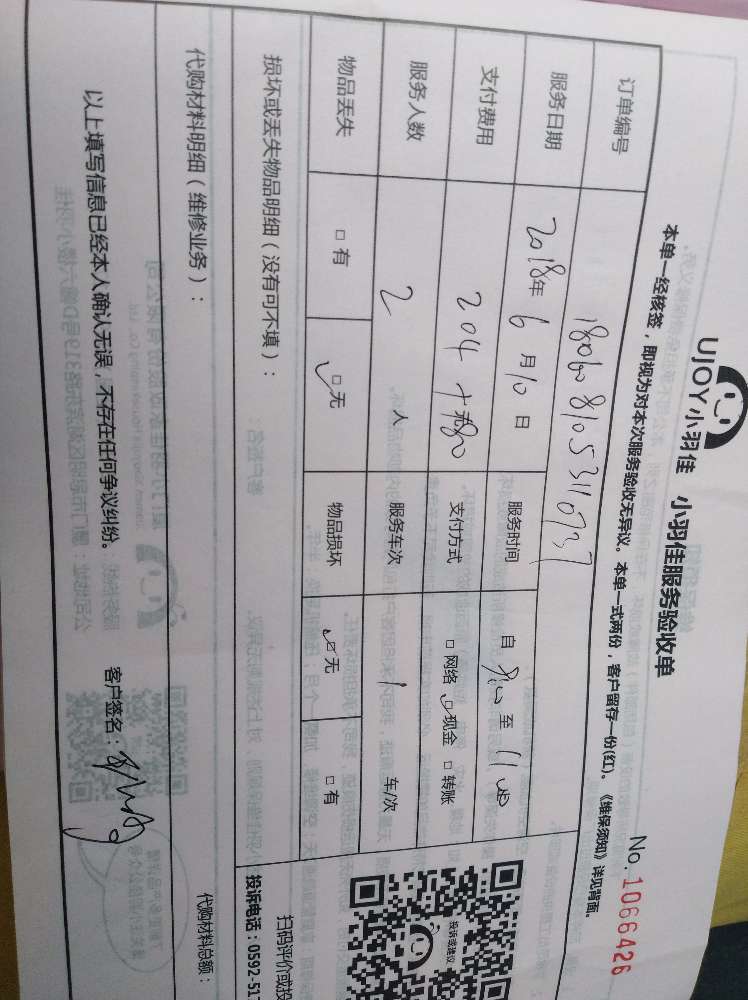 UJOY小羽佳 小羽佳服务验收单
No. 1066426
本单一经核签，即视为对本次服务验收无异议。本单一式两份，客户留存一份(红)。《维保须知》详见背面。
订单编号
服务日期 2018年 6月10日 服务时间 自 至
支付费用 204 支付方式 □ 网络 □ 现金 □ 转账
服务人数 2 人 服务车次 1 车/次
物品丢失 □ 有 □ 无 物品损坏 □ 无 □ 有
损坏或丢失物品明细（没有可不填）：
代购材料明细（维修业务）： 代购材料总额：
以上填写信息已经本人确认无误，不存在任何争议纠纷。 客户签名：
投诉或建议
扫码评价或投
投诉电话：0592-51